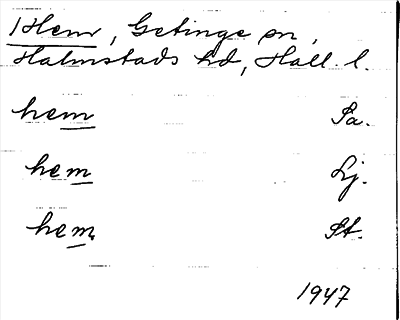 1 Hem, Getinge sn,
Halmstads hd, Hall. l.
hem Sa.
hem Lj.
hem St.
1947